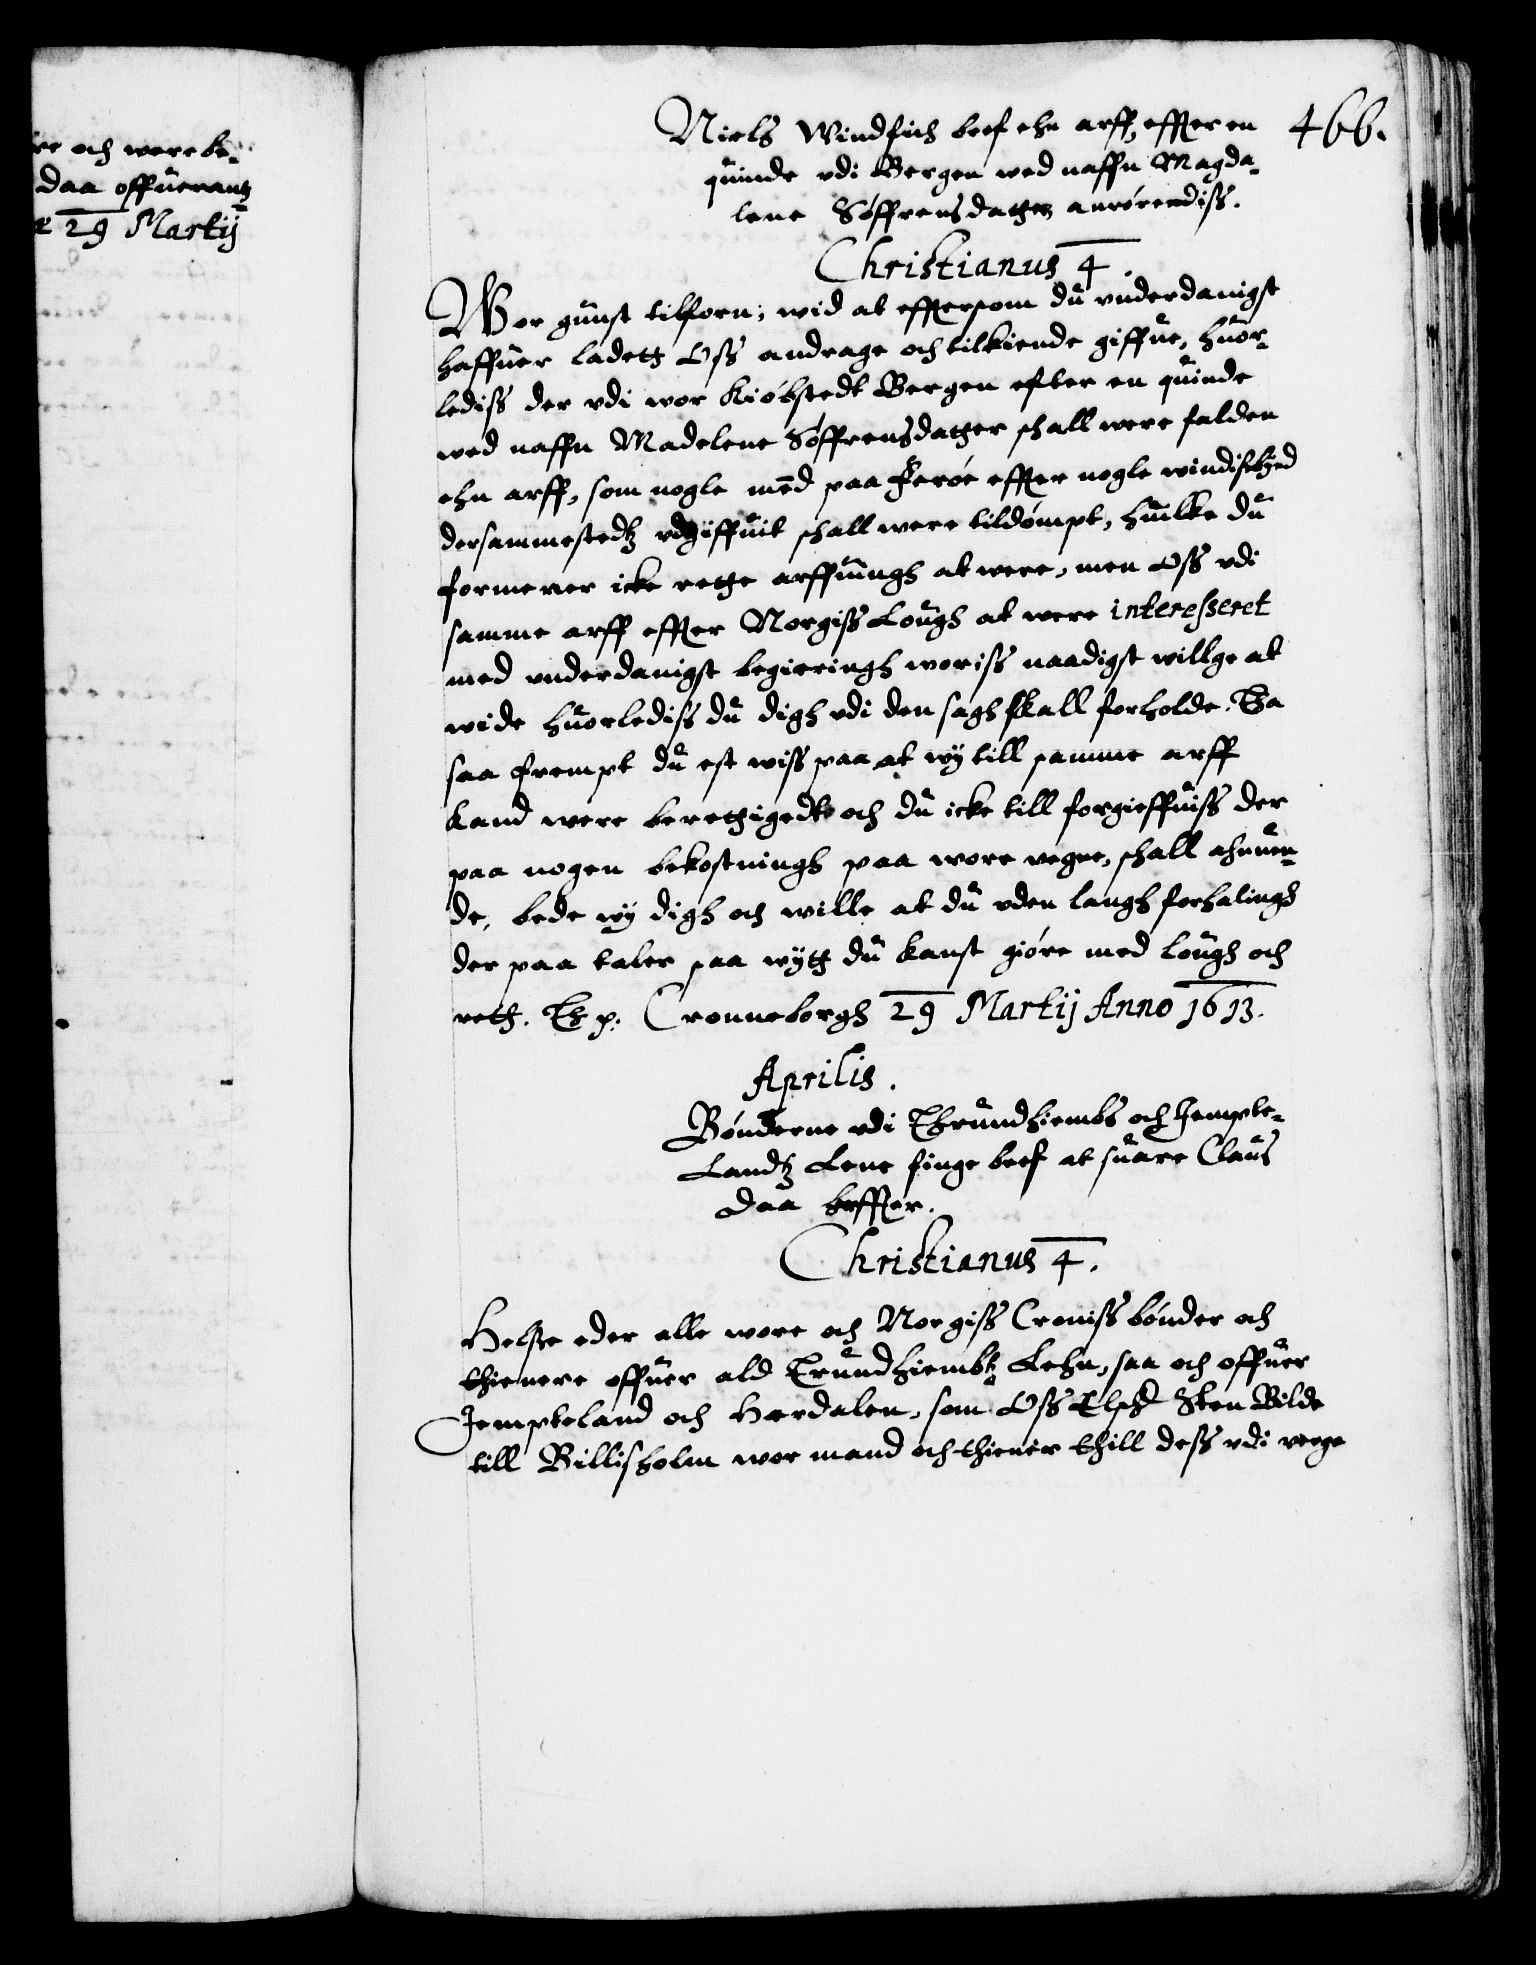 re och were be-
daa offuerantz
29 Martij
466.
Niels Windfich bref ehn arff effter en
quinde vdi Bergen wed naffn Magda-
lene Søffrensdatter anrørendiss.
Christianus 4.
Wor gunst tilforn; wid at effttersom du vnderdanigst
haffuer ladett Oss andrage och tilkiende giffue, huor-
lediss der vdi wor Kiøbstedt Bergen efter en quinde
wed naffn Madelene Søffrensdatter schall were falden
ehn arff, som nogle med paa Ferøe effter nogle windisbyrd
dersammestedtz vdgiffuit schall were tildømpt, huilke du
formener icke rette arffuingh at were, men Oss vdi
samme arff effter Norgiss Lough at were interesseret
med vnderdanigst begieringh woriss naadigst willge at
wide huorlediss du digh vdi den sagh skall forholde. Da
saa frempt du est wiss paa at wy till samme arff
kand were berettigedt och du icke till forgieffuiss der
paa nogen bekostningh paa wore vegne, schall ahnuen-
de, bede wy digh och wille at du vden langh forhalingh
der paa taler saa wytt du kanst giøre med lough och
rett. Ex p. Cronneborgh 29 Martij Anno 1613.
Aprilis.
Bønderne vdi Thrundhiembs och Jempte-
Landtz Lene finge bref at suare Claus
Daa heffter.
Christianus 4.
Helse eder alle wore och Norgiss Croniss bønder och
thienere offuer ald Trundhiembtz Lehn, saa och offuer
Jempteland och Herdalen, som Oss Elschl Sten Bilde
till Billisholm wor mand och thiener thill dess vdi verge